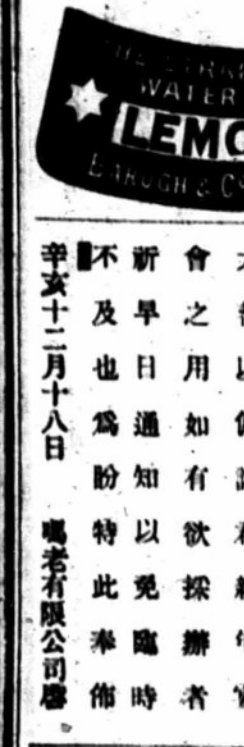 WATER
LEMO
BARUGH & C
會之用如有欲採辦者
祈早日通知以免臨時
不及也爲盼特此奉佈
辛亥十二月十八日 噶老有限公司啓